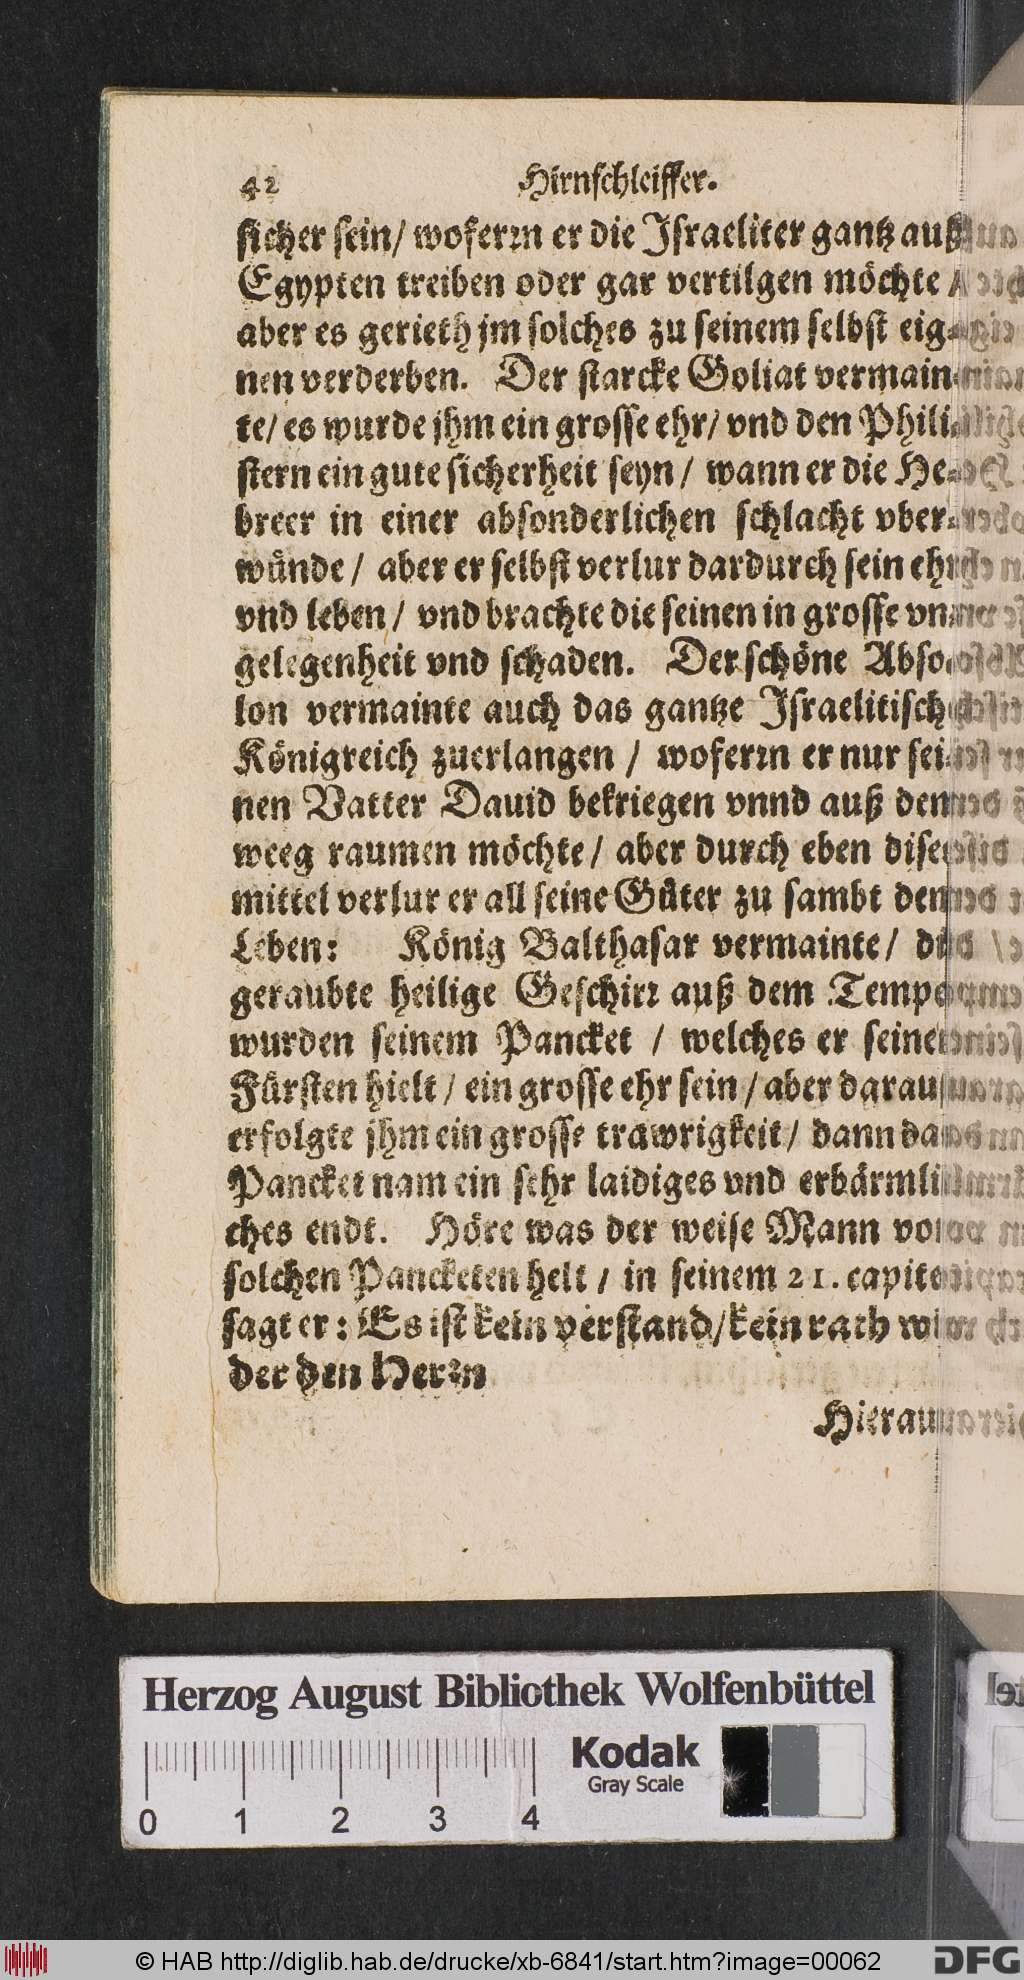 42 Hirnschleiffer.
sicher sein/ woferꝛn er die Israeliter gantz auß
Egypten treiben oder gar vertilgen möchte /
aber es gerieth jm solches zu seinem selbst eig-
nen verderben. Der starcke Goliat vermain-
te/ es wurde jhm ein grosse ehr/ vnd den Phili-
stern ein gute sicherheit seyn / wann er die He-
breer in einer absonderlichen schlacht vber-
wünde / aber er selbst verlur dardurch sein ehr
vnd leben / vnd brachte die seinen in grosse vn-
gelegenheit vnd schaden. Der schöne Abso-
lon vermainte auch das gantze Israelitisch
Königreich zuerlangen / woferꝛn er nur sei-
nen Vatter Dauid bekriegen vnnd auß dem
weeg raumen möchte / aber durch eben dise
mittel verlur er all seine Güter zu sambt dem
Leben: König Balthasar vermainte / die
geraubte heilige Geschirꝛ auß dem Tempel
wurden seinem Pancket / welches er seinen
Fürsten hielt / ein grosse ehr sein / aber darauß
erfolgte jhm ein grosse trawrigkeit / dann das
Pancket nam ein sehr laidiges vnd erbärmli-
ches endt. Höre was der weise Mann von
solchen Pancketen helt / in seinem 21. capitel
sagt er: Es ist kein verstand/ kein rath wi-
der den Herꝛn
Hierau
Herzog August Bibliothek Wolfenbüttel
Kodak
Gray Scale
0 1 2 3 4
© HAB http://diglib.hab.de/drucke/xb-6841/start.htm?image=00062
DFG